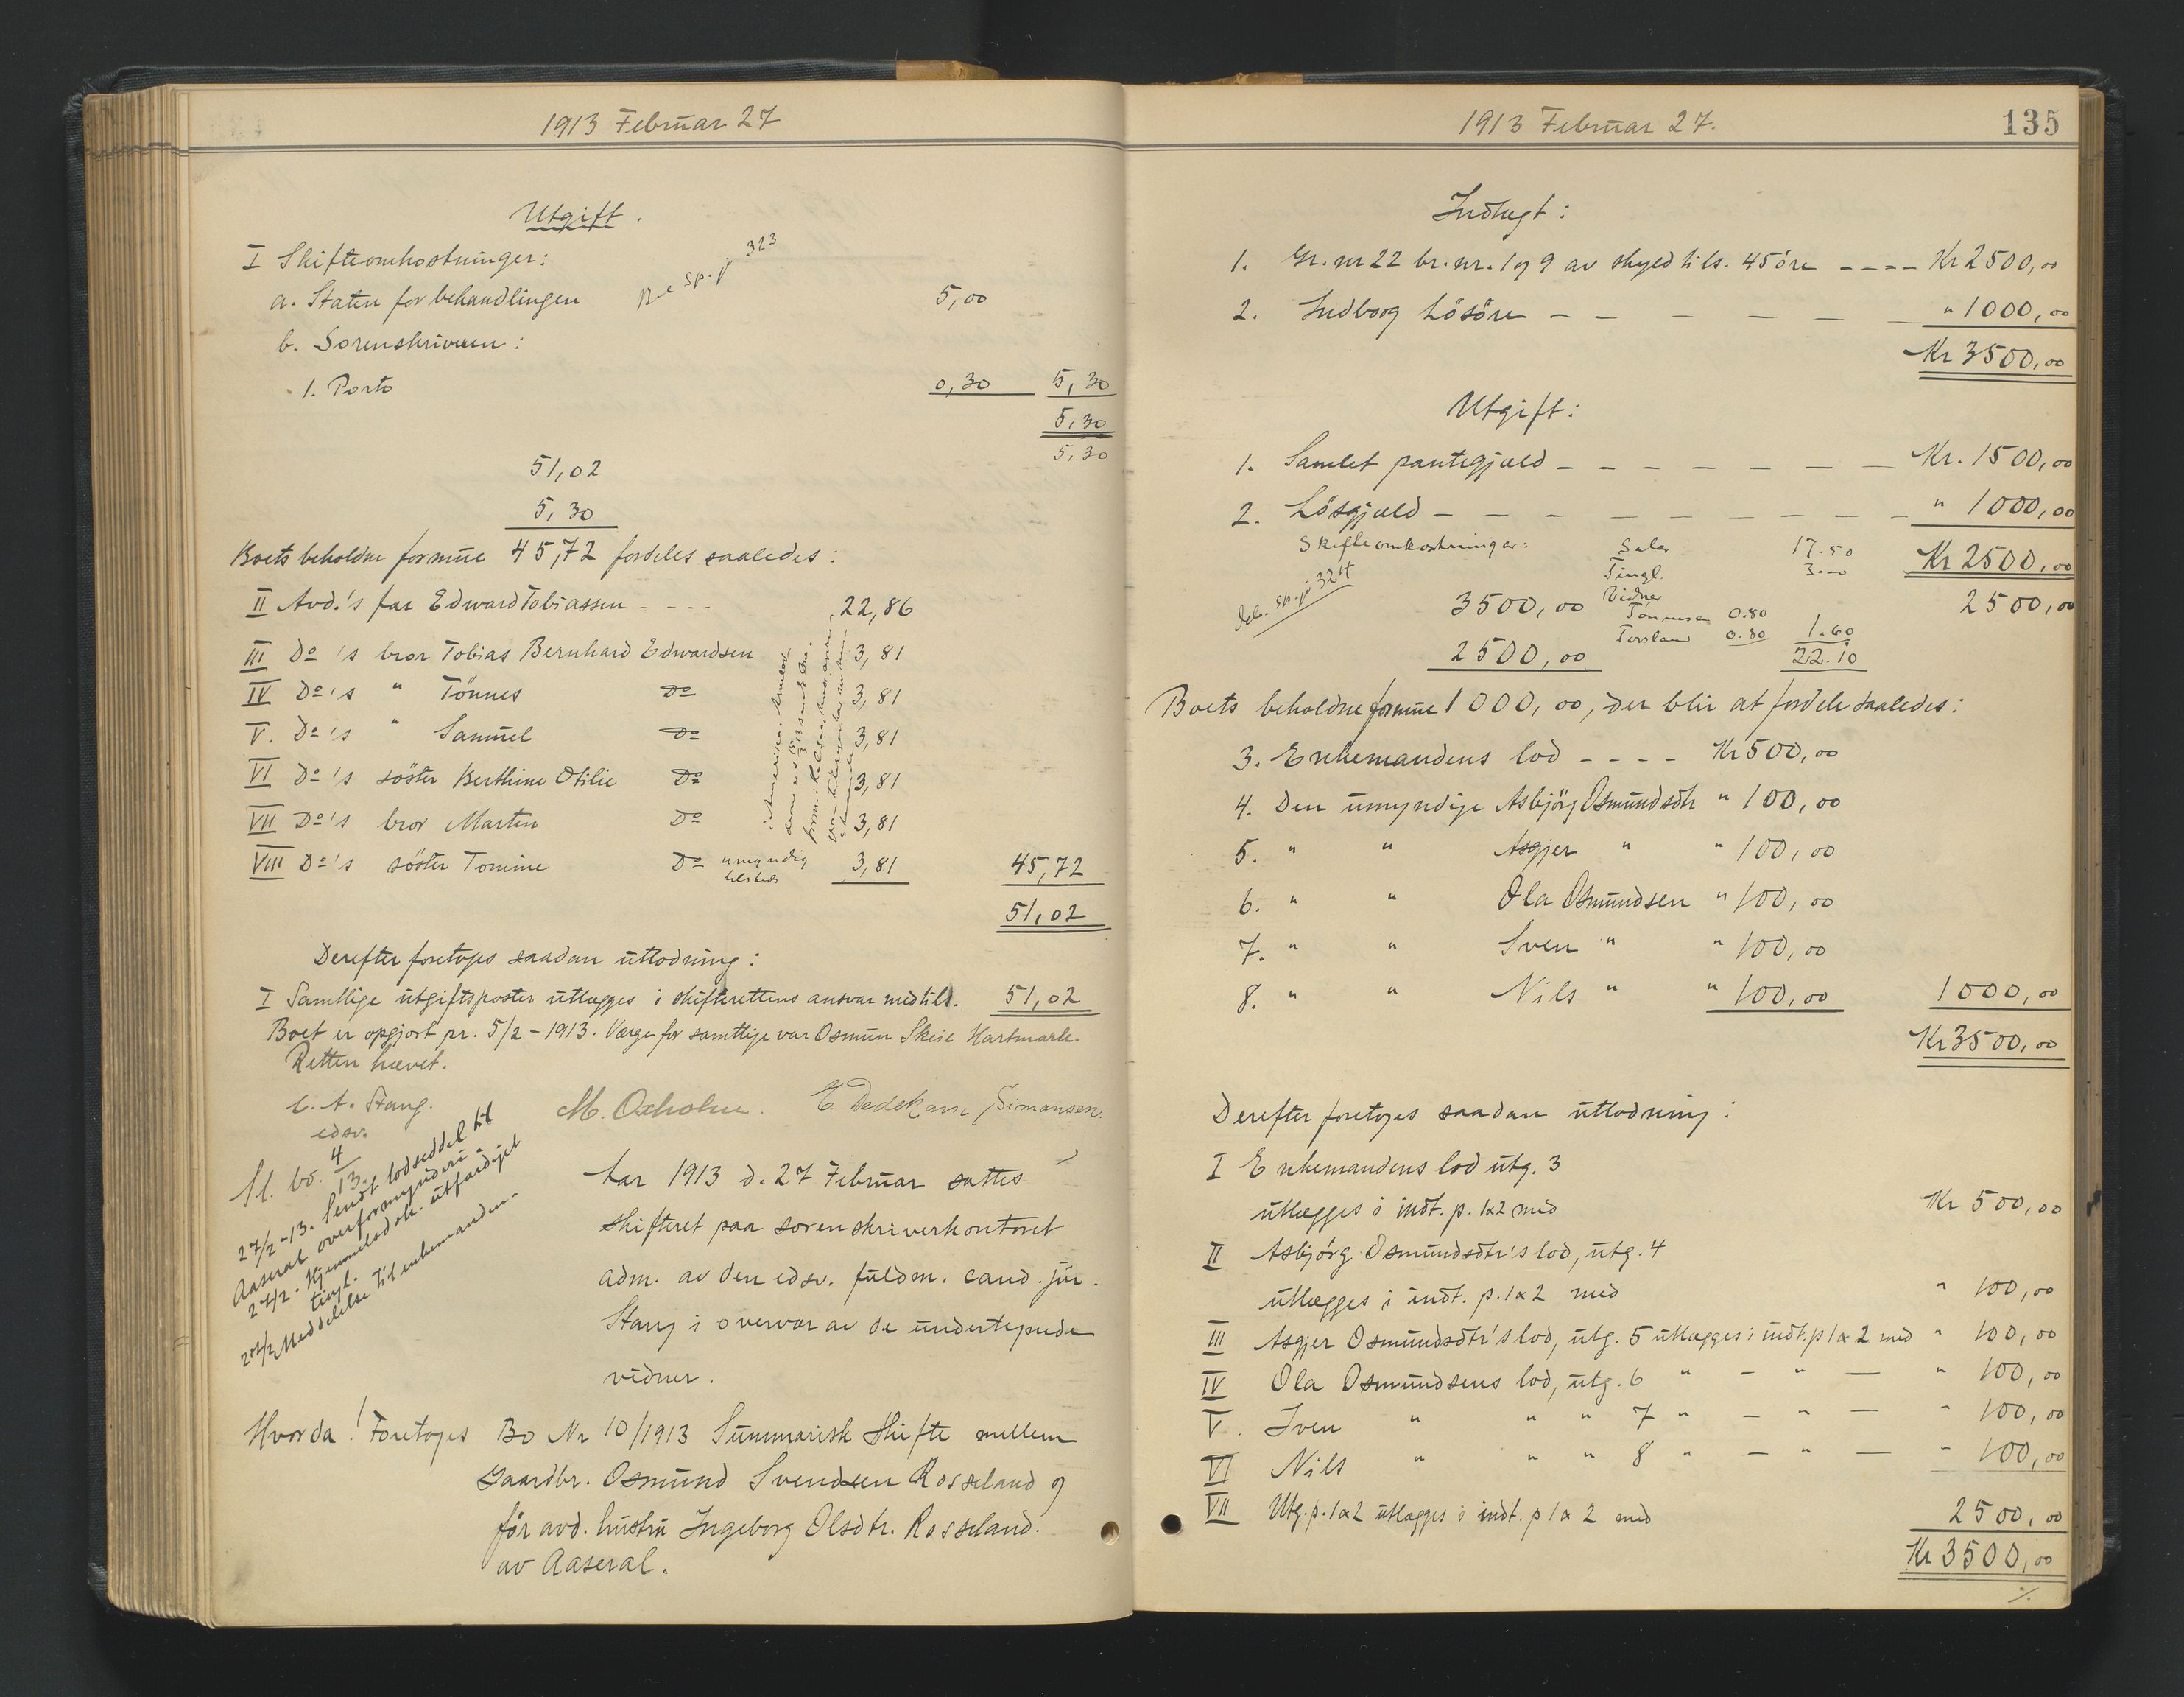 1913 Februar 27
Utgift.
I Skifteomkostninger:
a. Staten for behandlingen 5,00
sp. j 323
b. Sorenskriveren:
1. Porto 0,30 5,30
5,30
5,30
51,02
5,30
Boets beholdne formue 45,72 fordeles saaledes:
II Avd.'s far Edward Tobiassen - - - - 22,86
III Do's bror Tobias Bernhard Edwardsen 3,81
IV Do's " Tönnes Do 3,81
V. Do's " Samuel Do 3,81
VI Do's söster Berthine Otilie Do 3,81
VII Do's bror Martin Do 3,81
VIII Do's söster Tomine Do umyndig tilstede 3,81 45,72
51,02
i Amerika
Derefter foretoges saadan utlodning:
I Samtlige utgiftsposter utlægges i skifterettens ansvar med tils. 51,02
Boet er opgjort pr. 5/2 - 1913. Værge for samtlige var Osmun Skeie Hartmark.
Retten hævet.
C. A. Stang.
edsv.
M. Oxholm. E. Dedekam Simonsen.
Sl. bo. 4/13.
27/2-13. Sendt lodseddel til
Aaseral overformynderi.
27/2. Hjemmelsdok. utfærdiget
tingl.
27/2 Meddelelse til enkemanden.
Aar 1913 d. 27 Februar sattes
skifteret paa sorenskriverkontoret
adm. av den edsv. fuldm. cand. jur.
Stang i overvær av de undertegnede
vidner.
Hvorda! Foretoges Bo Nr 10/1913 Summarisk skifte mellem
Gaardbr. Osmund Svendsen Rosseland og
før avd. hustru Ingeborg Olsdtr. Rosseland.
av Aaseral.
1913 Februar 27. 135
Indtægt:
1. Gr. nr 22 br. nr. 1 og 9 av skyld tils. 45 öre - - - - Kr 2500,00
2. Indbo og Lösöre - - - - - - " 1000,00
Kr 3500,00
Utgift:
1. Samlet pantegjæld - - - - - - - Kr. 1500,00
2. Lösgjæld - - - - - - - - - " 1000,00
Skifteomkostninger: Salær 17.50 Kr 2500,00
Tingl. 3.00
sp. j 324
3500,00 Vidner 2500,00
Tönnesen 0.80
Fossland 0.80 1.60
2500,00 22.10
Boets beholdne formue 1000,00, der blir at fordele saaledes:
3. Enkemandens lod - - - - Kr 500,00
4. Den umyndige Asbjörg Osmundsdtr " 100,00
5. " " Asgjer " " 100,00
6. " " Ola Osmundsen " 100,00
7. " " Sven " " 100,00
8. " " Nils " " 100,00 1000,00
Kr 3500,00
Derefter foretoges saadan utlodning:
I Enkemandens lod utg. 3
utlægges i indt. p. 1 & 2 med Kr 500,00
II Asbjörg Osmundsdtr's lod, utg. 4
utlægges i indt. p. 1 & 2 med " 100,00
III Asgjer Osmundsdtr's lod, utg. 5 utlægges i indt. p 1 & 2 med " 100,00
IV Ola Osmundsens lod, utg. 6 " — " — " 100,00
V. Sven " " " 7 " — " — " 100,00
VI Nils " " " 8 " — " — " 100,00
VII Utg. p. 1 & 2 utlægges i indt. p 1 & 2 med 2500,00
Kr 3500,00
./.